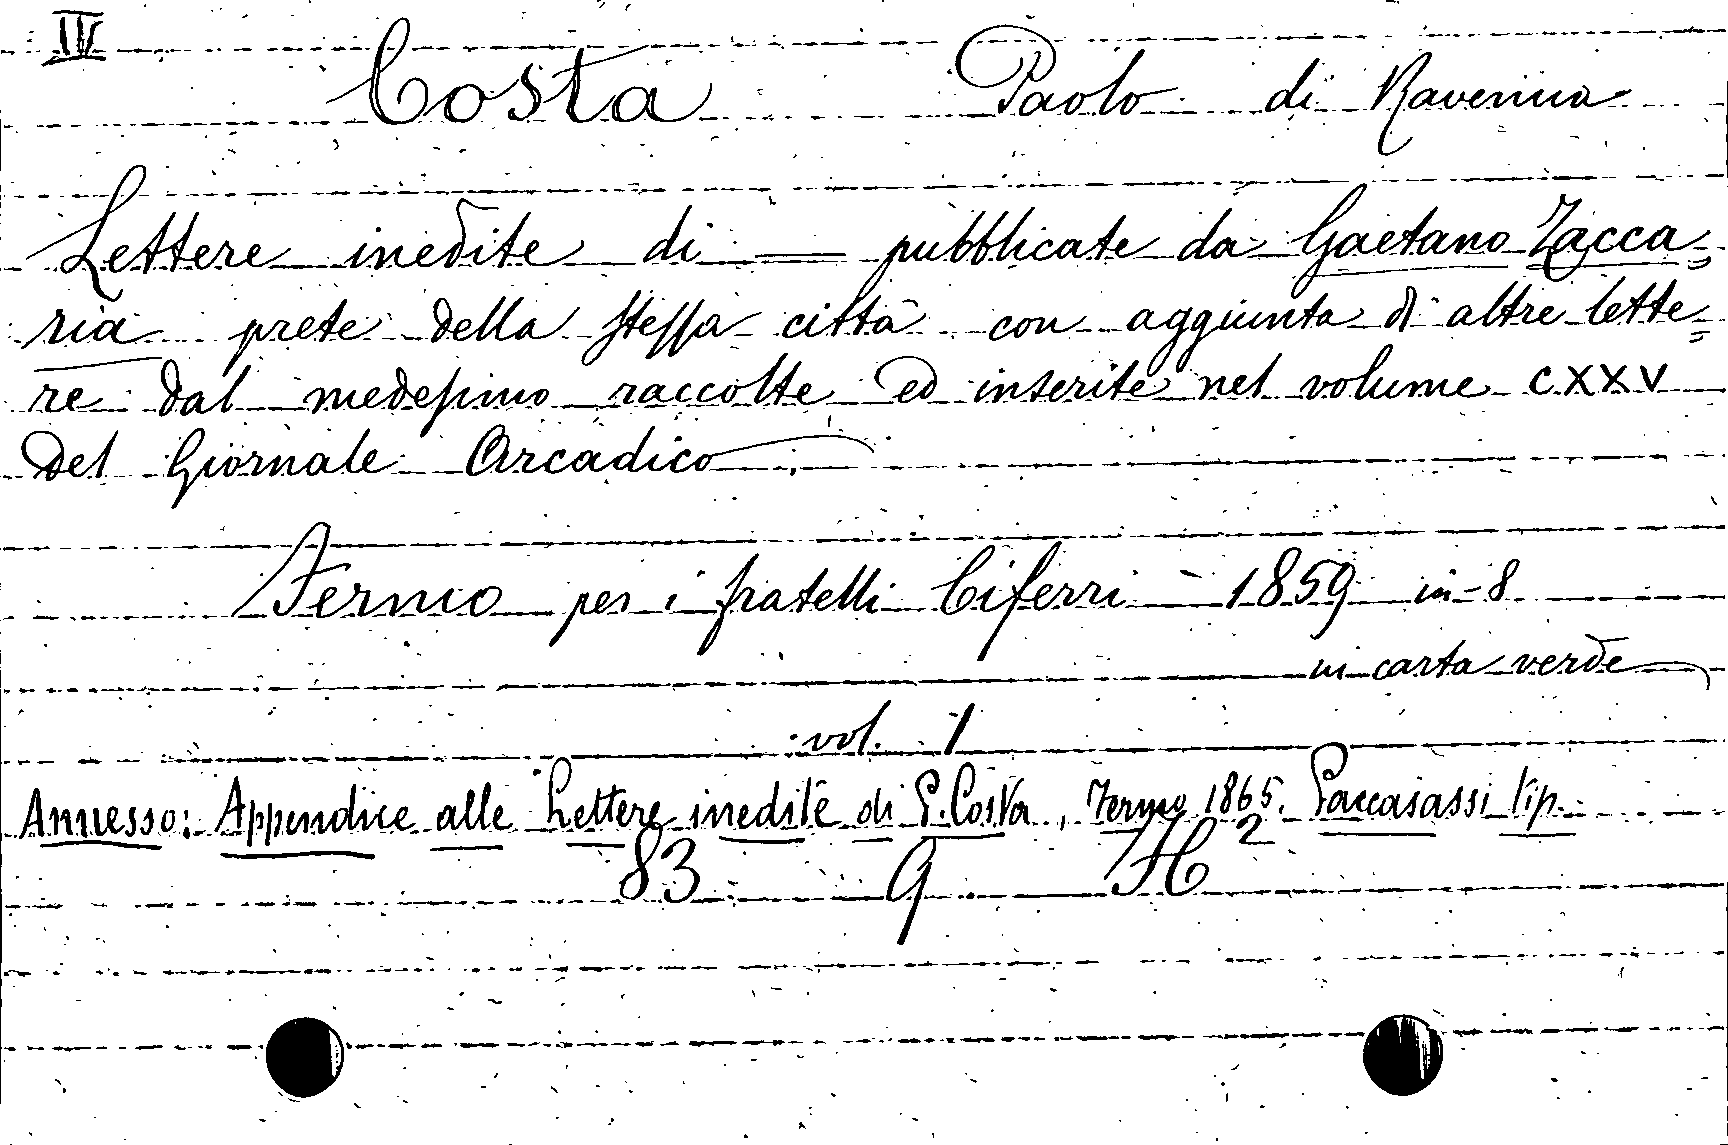 IV
Costa Paolo di Ravenna
Lettere inedite di — pubblicate da Gaetano Zacca=
ria prete della stessa città con aggiunta di altre lette=
re dal medesimo raccolte ed inserite nel volume CXXV
del Giornale Arcadico
Fermo per i fratelli Ciferri - 1859 in-8
in carta verde
vol. 1
Annesso: Appendice alle Lettere inedite di P. Costa, Fermo 1865. Paccasassi tip.
83 9 H²